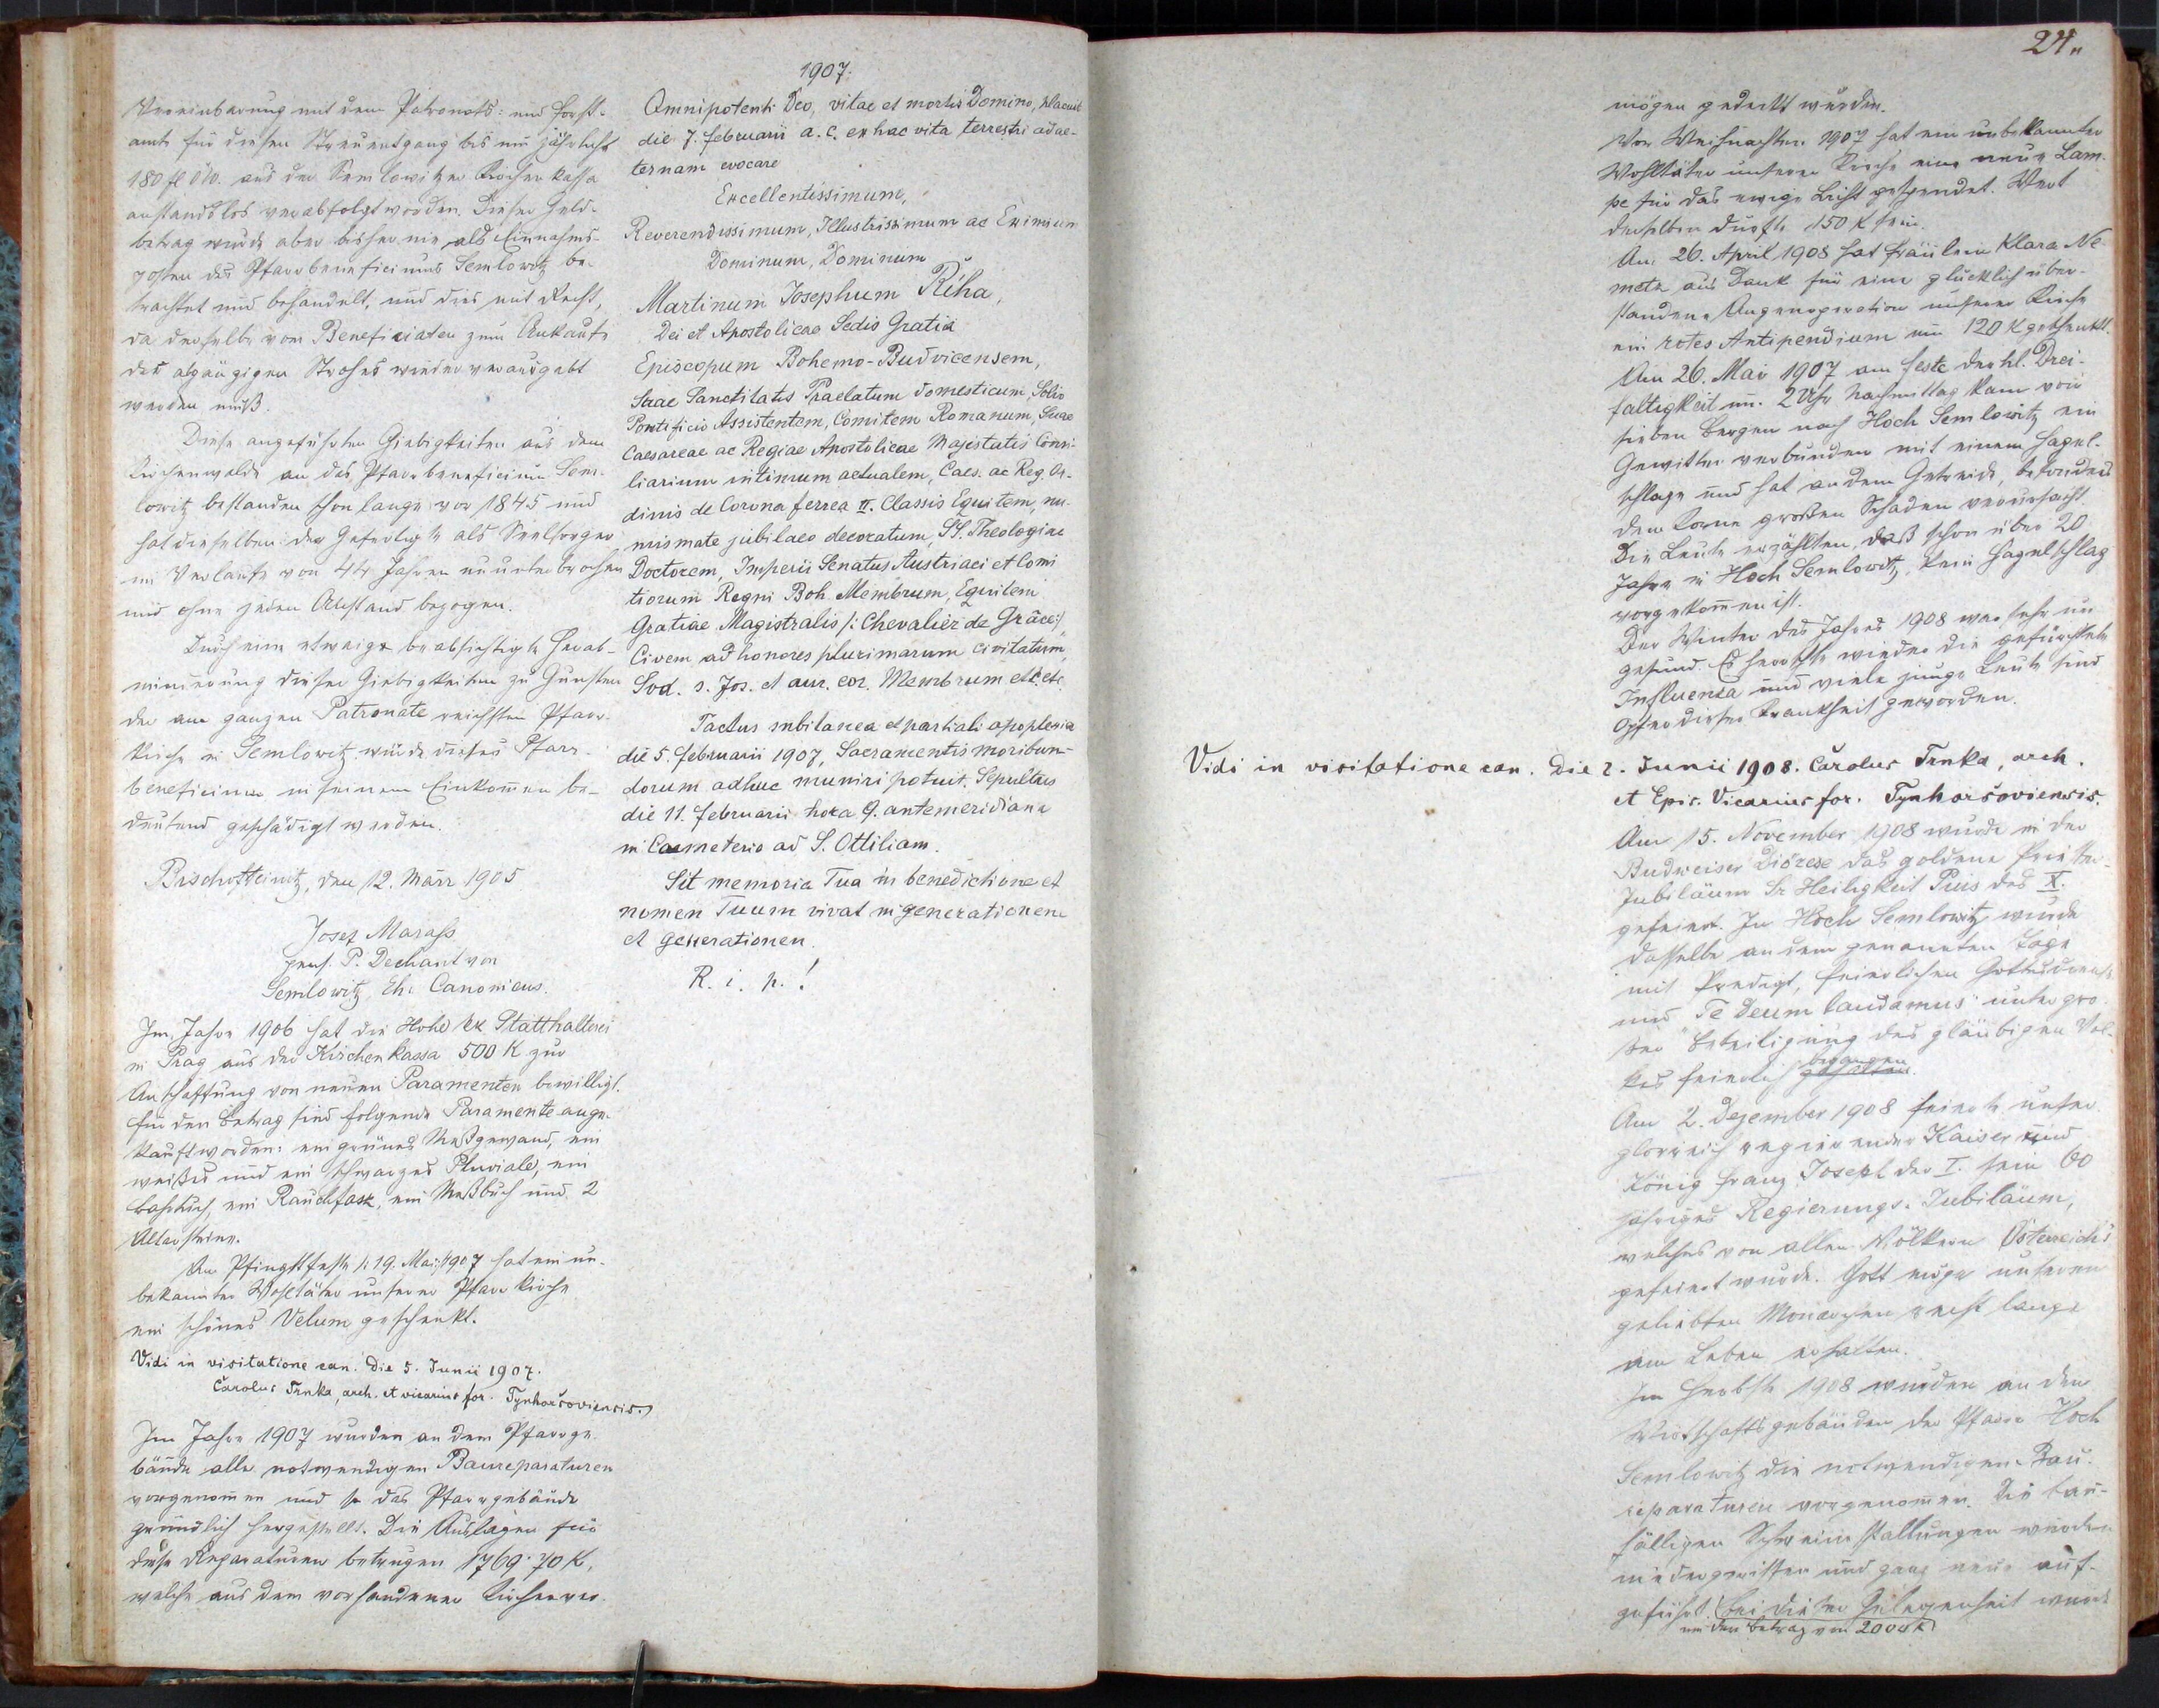 Vereinbarung mit dem Patronats- und Forst-
amte für diesen Streuentgang bis nun jährlich
180 fl ö.W. aus der Semlowitzer Kirchenkassa
anstandslos verabfolgt worden. Dieser Geld-
betrag wurde aber bisher nie als Einnahms-
posten des Pfarrbeneficiums Semlowitz be-
trachtet und behandelt, und dies mit Recht,
da derselbe vom Beneficiaten zum Ankaufe
des abgängigen Strohes wieder verausgabt
werden muß.
Diese angeführten Giebigkeiten aus dem
Kirchenwalde an das Pfarrbeneficium Sem-
lowitz bestanden schon lange vor 1845 und
hat dieselben der Gefertigte als Seelsorger
im Verlaufe von 44 Jahren ununterbrochen
und ohne jeden Anstand bezogen.
Durch eine etwaige beabsichtigte Herab-
minderung dieser Giebigkeiten zu Gunsten
der am ganzen Patronate reichsten Pfarr-
kirche in Semlowitz würde dieses Pfarr-
beneficium in seinem Einkommen be-
deutend geschädigt werden.
Bischofteinitz, den 12. März 1905
Josef Marass
pens. P. Dechant von
Semlowitz, Eh. Canonicus.
Im Jahre 1906 hat die Hohe kk Statthalterei
in Prag aus der Kirchenkassa 500 K zur
Anschaffung von neuen Paramenten bewilligt.
Für den Betrag sind folgende Paramente ange-
kauft worden: ein grünes Meßgewand, ein
weißes und ein schwarzes Pluviale, ein
Bahrtuch, ein Rauchfass, ein Meßbuch und 2
Altarsteine.
Am Pfingstfeste /: 19. Mai :/ 1907 hat ein un-
bekannter Wohltäter unserer Pfarrkirche
ein schönes Velum geschenkt.
Vidi in visitatione can. Die 5. Junii 1907.
Carolus Trnka, arch. et vicarius for. Tynhoršoviensis.
Im Jahre 1907 wurden an dem Pfarrge-
bäude alle notwendigen Baureparaturen
vorgenommen und so das Pfarrgebäude
gründlich hergestellt. Die Auslagen für
diese Reparaturen betrugen 1769·70 K,
welche aus dem vorhandenen Kirchenver-
1907:
Omnipotenti Deo, vitae et mortis Domino, placuit
die 7. februarii a. c. ex hac vita terrestri ad ae-
ternam evocare
Excellentissimum,
Reverendissimum, Illustrissimum ac Eximium
Dominum, Dominum
Martinum Josephum Říha,
Dei et Apostolicae Sedis Gratia
Episcopum Bohemo-Budvicensem,
Suae Sanctitatis Praelatum domesticum, Solio
Pontificio Assistentem, Comitem Romanum, Suae
Caesareae ac Regiae Apostolicae Majestatis Consi-
liarium intimum actualem, Caes. ac Reg. Or-
dinis de Corona ferrea II. Classis Equitem, nu-
mismate jubilaeo decoratum, SS. Theologiae
Doctorem, Imperii Senatus Austriaci et Comi
tiorum Regni Boh. Membrum, Equitem
Gratiae Magistralis /: Chevalier de Grâce:/,
Civem ad honores plurimarum civitatum,
Sod. s. Jos. et aur. cor. Membrum etc. etc.
Tactus subitanea et partiali apoplexia
die 5. februarii 1907, Sacramentis moribun-
dorum adhuc muniri potuit. Sepultus
die 11. februarii hora 9. antemeridiana
in Coemeterio ad S. Ottiliam.
Sit memoria Tua in benedictione et
nomen Tuum vivat in generationem
et generationem.
R. i. p.!
24.
mögen gedeckt wurden.
Vor Weihnachten 1907 hat ein unbekannter
Wohltäter unserer Kirche eine neue Lam-
pe für das ewige Licht gespendet. Wert
derselben dürfte 150 K sein.
Am 26. April 1908 hat Fräulein Klara Ne-
metz aus Dank für eine glücklich über-
standene Augenoperation unserer Kirche
ein rotes Antipendium um 120 K geschenkt.
Am 26. Mai 1907 am Feste der hl. Drei-
faltigkeit um 2 Uhr Nachmittag kam von
sieben Bergen nach Hoch Semlowitz ein
Gewitter verbunden mit einem Hagel-
schlage und hat an dem Getreide, besonders
dem Korne großen Schaden verursacht
Die Leute erzählten, daß schon über 20
Jahre in Hoch Semlowitz, kein Hagelschlag
vorgekommen ist.
Der Winter des Jahres 1908 war sehr un
gesund. Es herrschte wieder die gefürchtete
Influenza und viele junge Leute sind
Opfer dieser Krankheit geworden.
Vidi in visitatione can. Die 2. Junii 1908. Carolus Trnka, arch.
et Epis. Vicarius for. Tynhoršoviensis.
Am 15. November 1908 wurde in der
Budweiser Diözese das goldene Priester-
Jubiläum Sr Heiligkeit Pius des X.
gefeiert. In Hoch Semlowitz wurde
dasselbe an dem genannten Tage
mit Predigt, feierlichen Gottesdienste
und "Te Deum laudamus" unter gro-
ßer Beteiligung des gläubigen Vol-
kes feierlich gehalten begangen.
Am 2. Dezember 1908 feierte unser
glorreich regierender Kaiser und
König Franz Joseph der I. sein 60
jähriges Regierungs-Jubiläum,
welches von allen Völkern Österreichs
gefeiert wurde. Gott möge unseren
geliebten Monarchen recht lange
am Leben erhalten.
Im Herbste 1908 wurden an den
Wirtschaftsgebäuden der Pfarre Hoch
Semlowitz die notwendigen Bau-
reparaturen vorgenommen. Die bau-
fälligen Schweinestallungen wurden
niedergerissen und ganz neue auf-
geführt. Bei dieser Gelegenheit wurde
um den Betrag von 2000 K